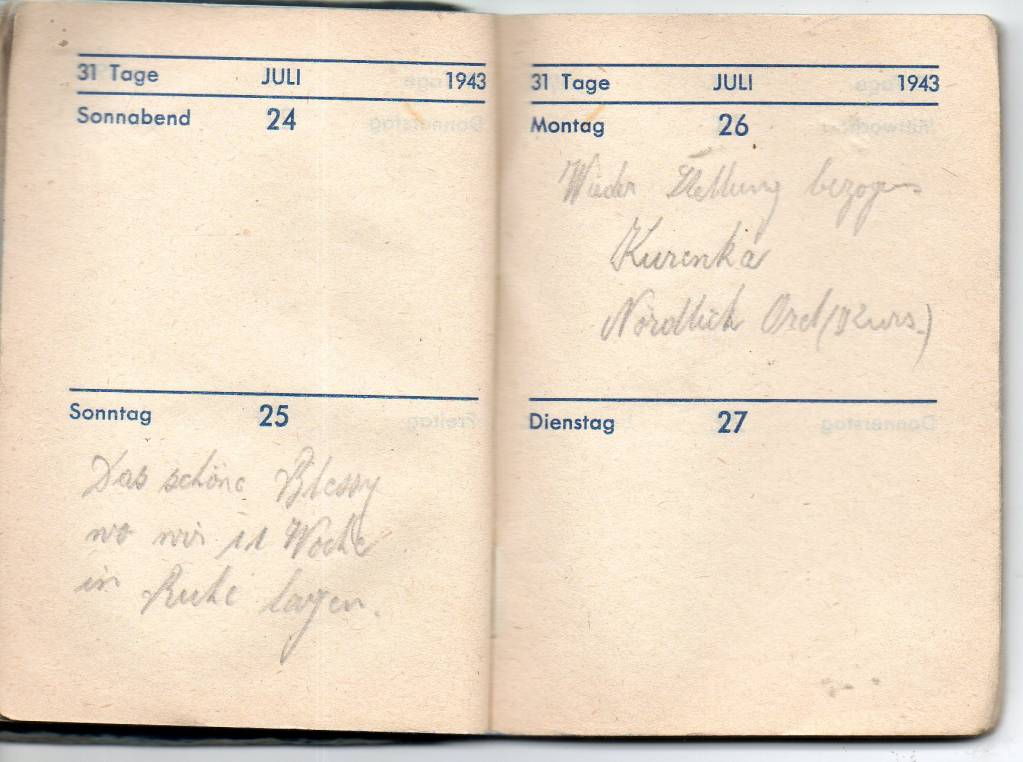 31 Tage JULI 1943
Sonnabend 24
Sonntag 25
Das schöne Blessy
wo wir 11 Woche
in Ruhe lagen.
31 Tage JULI 1943
Montag 26
Wieder Stellung bezogen
Kurenka
Nördlich Orel (Kurs.)
Dienstag 27